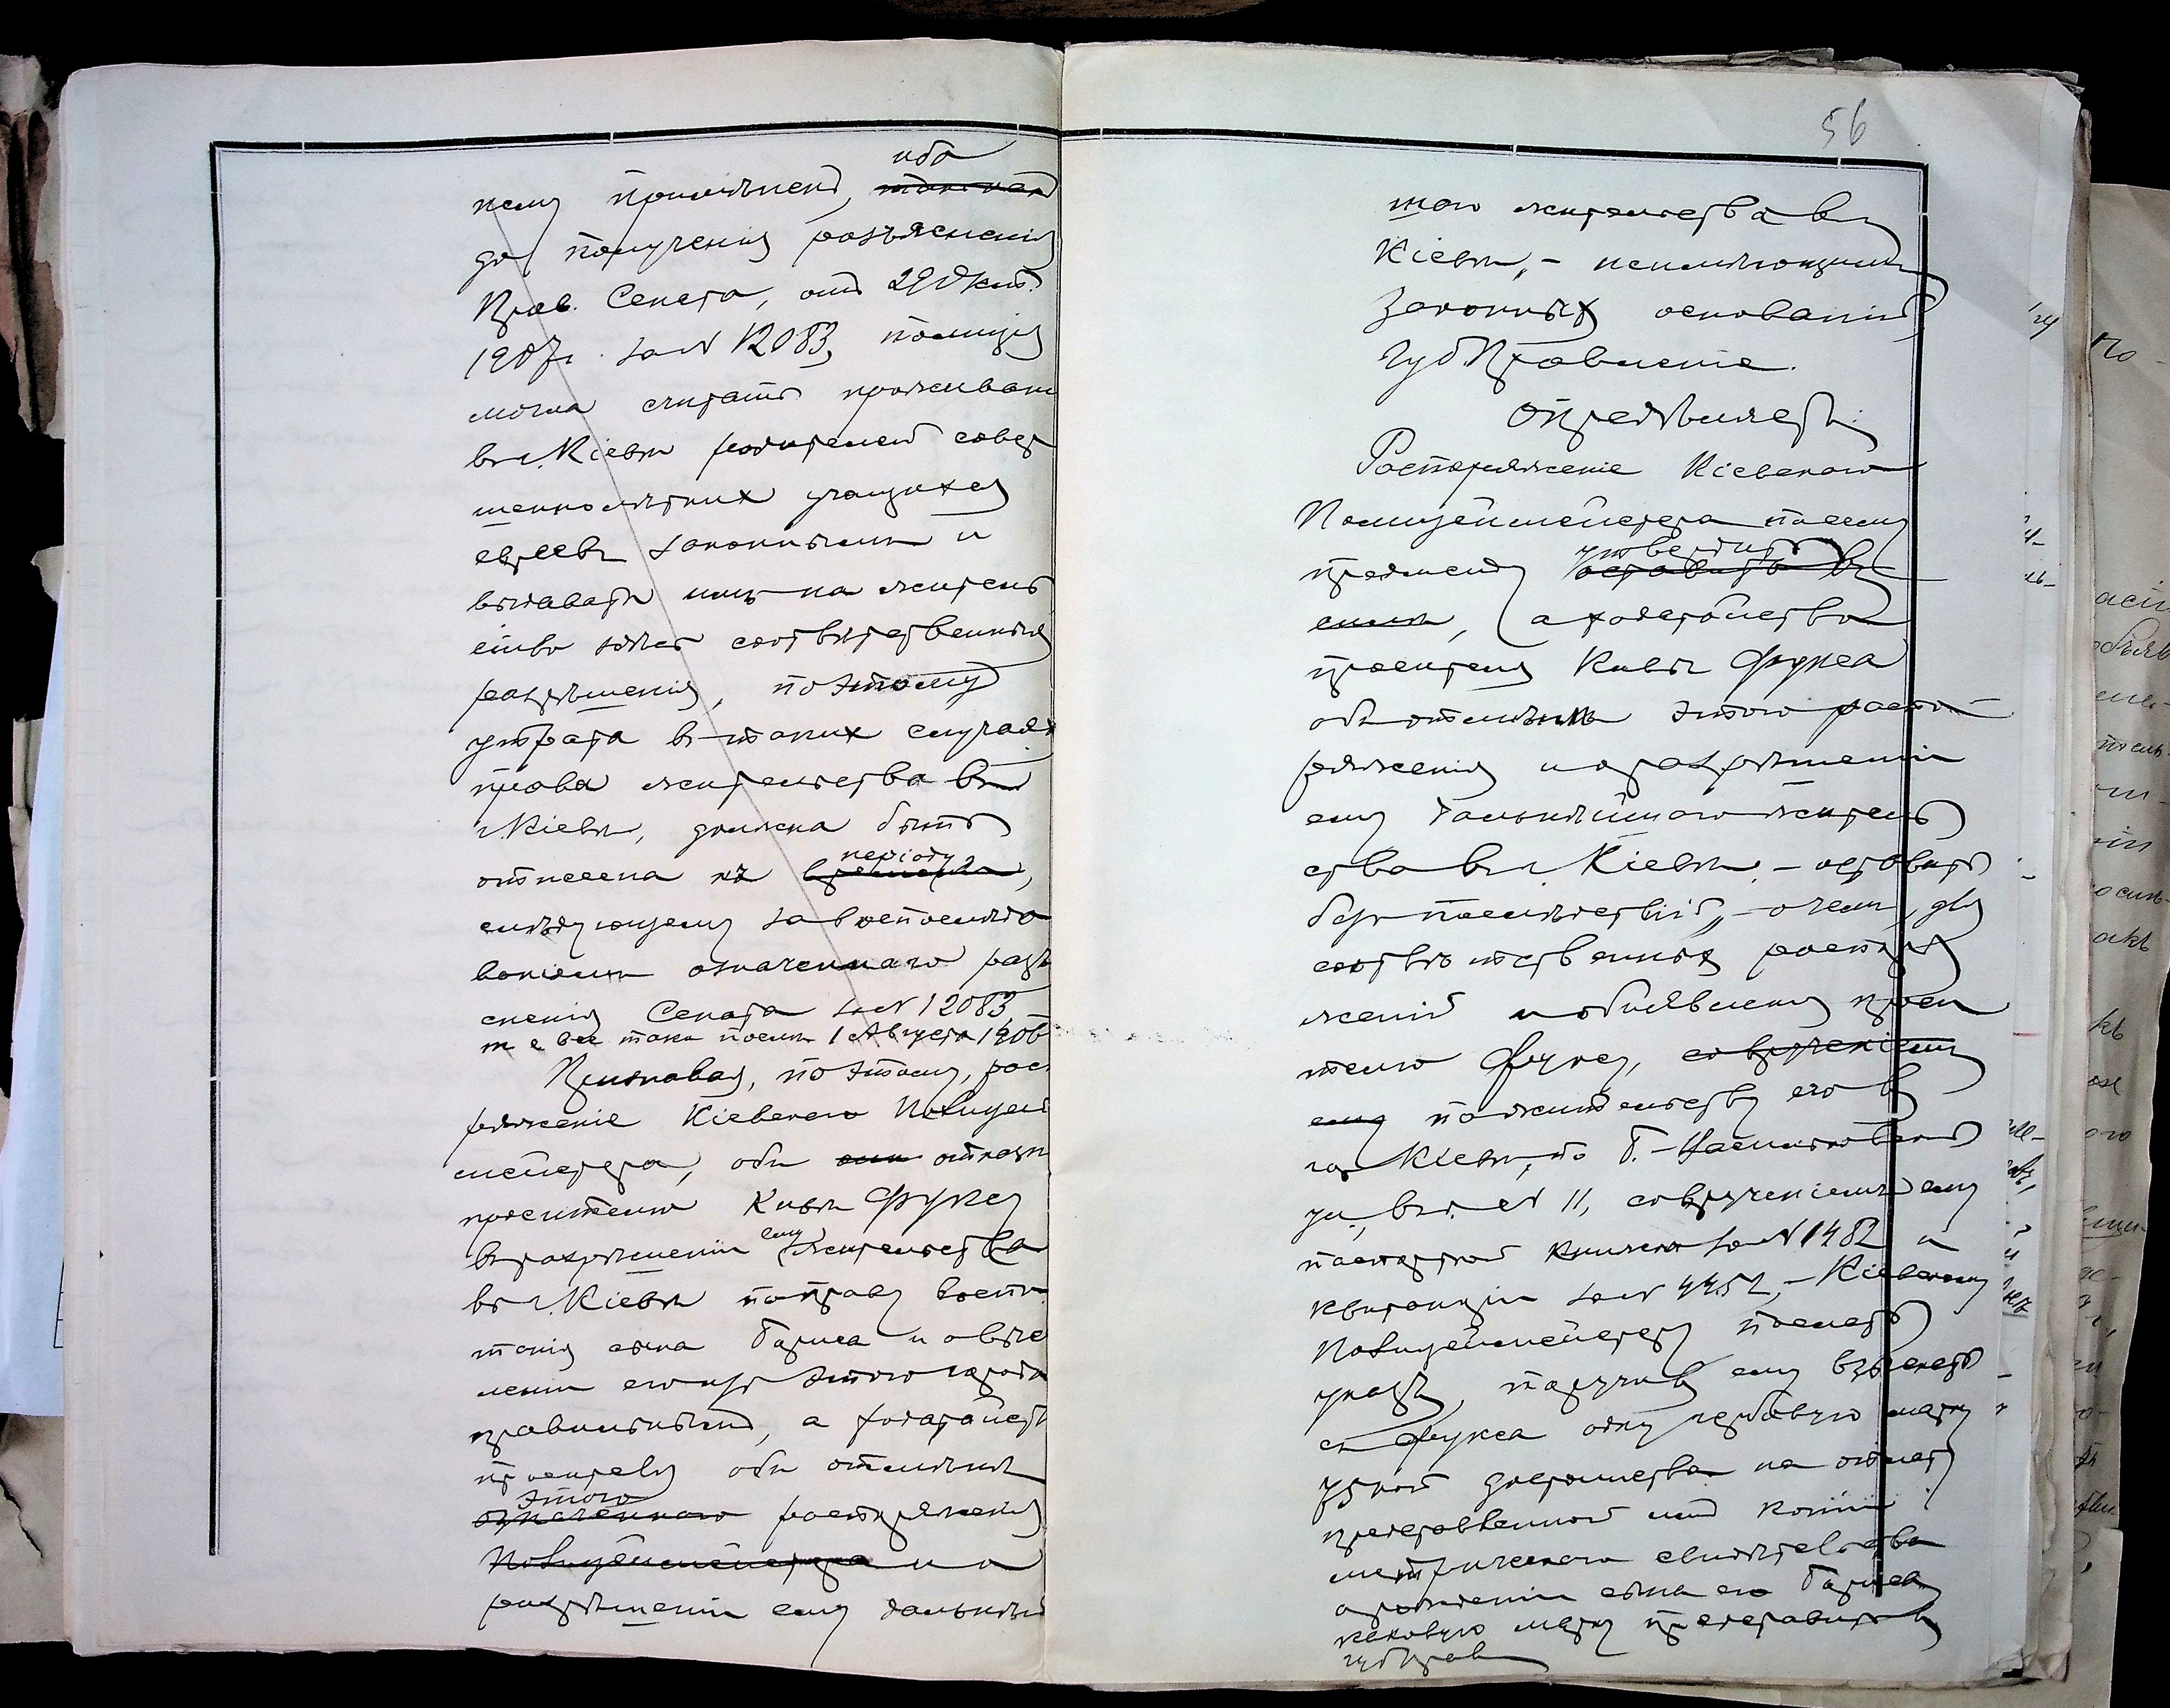 нему применена, ибо
до полученія разъясненія
Прав. Сената, отъ 29 Окт.
1907 г. за № 12083, полиція
могла считать проживан
въ г. Кіевѣ родителей совер
шеннолѣтнихъ учащихся
евреевъ законнымъ и
выдавать имъ на житель
ство здѣсь соотвѣтственныя
разрѣшенія, поэтому
утрата въ такихъ случаях
права жительства въ
г. Кіевѣ, должна быть
отнесена къ періоду,
слѣдующему за воспослѣдо
ваніемъ означеннаго разъ
сненія Сената за № 12083,
т е все таки послѣ 1 Августа 1906
Признавая, поэтому, расп
ряженіе Кіевскаго Полицей
мейстера, объ отказѣ
просителю Кивѣ Фуксу
въ разрѣшеніи ему жительства
въ г. Кіевѣ по праву воспи
танія сына Бориса и о высе
леніи его изъ этого города
правильнымъ, а ходатайст
просителя объ отмѣнѣ
этого распоряженія
и о
разрѣшеніи ему дальнѣй
56
шаго жительства въ
Кіевѣ, - неимѣющимъ
законныхъ основаній
Губ. Правленіе.
Опредѣляетъ:
Распоряженіе Кіевскаго
Полиціймейстера по сему
предмету утвердить
, а ходатайство
просителя Кивы Фукса
объ отмѣнѣ этого распо-
ряженія и о разрѣшеніи
ему дальнѣйшаго житель
ства въ г. Кіевѣ, - оставить
безъ послѣдствій, - о чемъ, для
соотвѣтственныхъ распоря
женій и объявленія проси
телю Фуксу, съ врученіемъ
ему по жительству его въ
гор. Кіевѣ, по Б.-Васильковской
ул., въ д. № 11, съ врученіемъ ему
паспортной книжки за № 1482 и
квитанціи за № 4452, - Кіевскому
Полицеймейстеру послать
указъ, поручивъ ему взыскать
съ Фукса одну гербовую марку
75 коп достоинства на оплату
представленной имъ копіи
метрическаго свидѣтельства
о рожденіи сына его Бориса,
каковую марку представить въ
Губ Прав